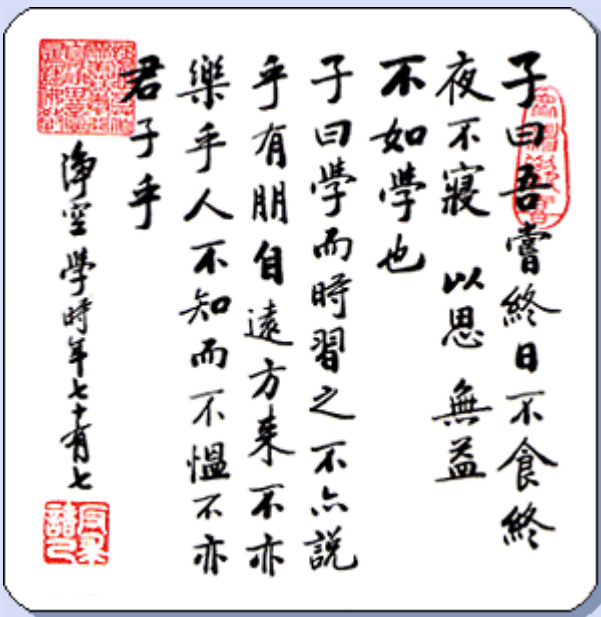 子曰吾嘗終日不食終
夜不寢以思無益
不如學也
子曰學而時習之不亦說
乎有朋自遠方來不亦
樂乎人不知而不慍不亦
君子乎
淨空學時年七十有七